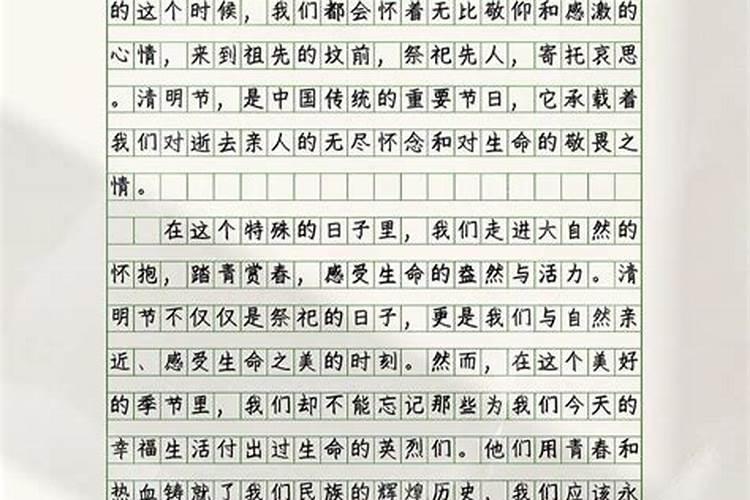 的这个时候，我们都会怀着无比敬仰和感激的
心情，来到祖先的坟前，祭祀先人，寄托哀思
。清明节，是中国传统的重要节日，它承载着
我们对逝去亲人的无尽怀念和对生命的敬畏之
情。
在这个特殊的日子里，我们走进大自然的
怀抱，踏青赏春，感受生命的盎然与活力。清
明节不仅仅是祭祀的日子，更是我们与自然亲
近、感受生命之美的时刻。然而，在这个美好
的季节里，我们却不能忘记那些为我们今天的
幸福生活付出过生命的英烈们。他们用青春和
热血铸就了我们民族的辉煌历史，我们应该永